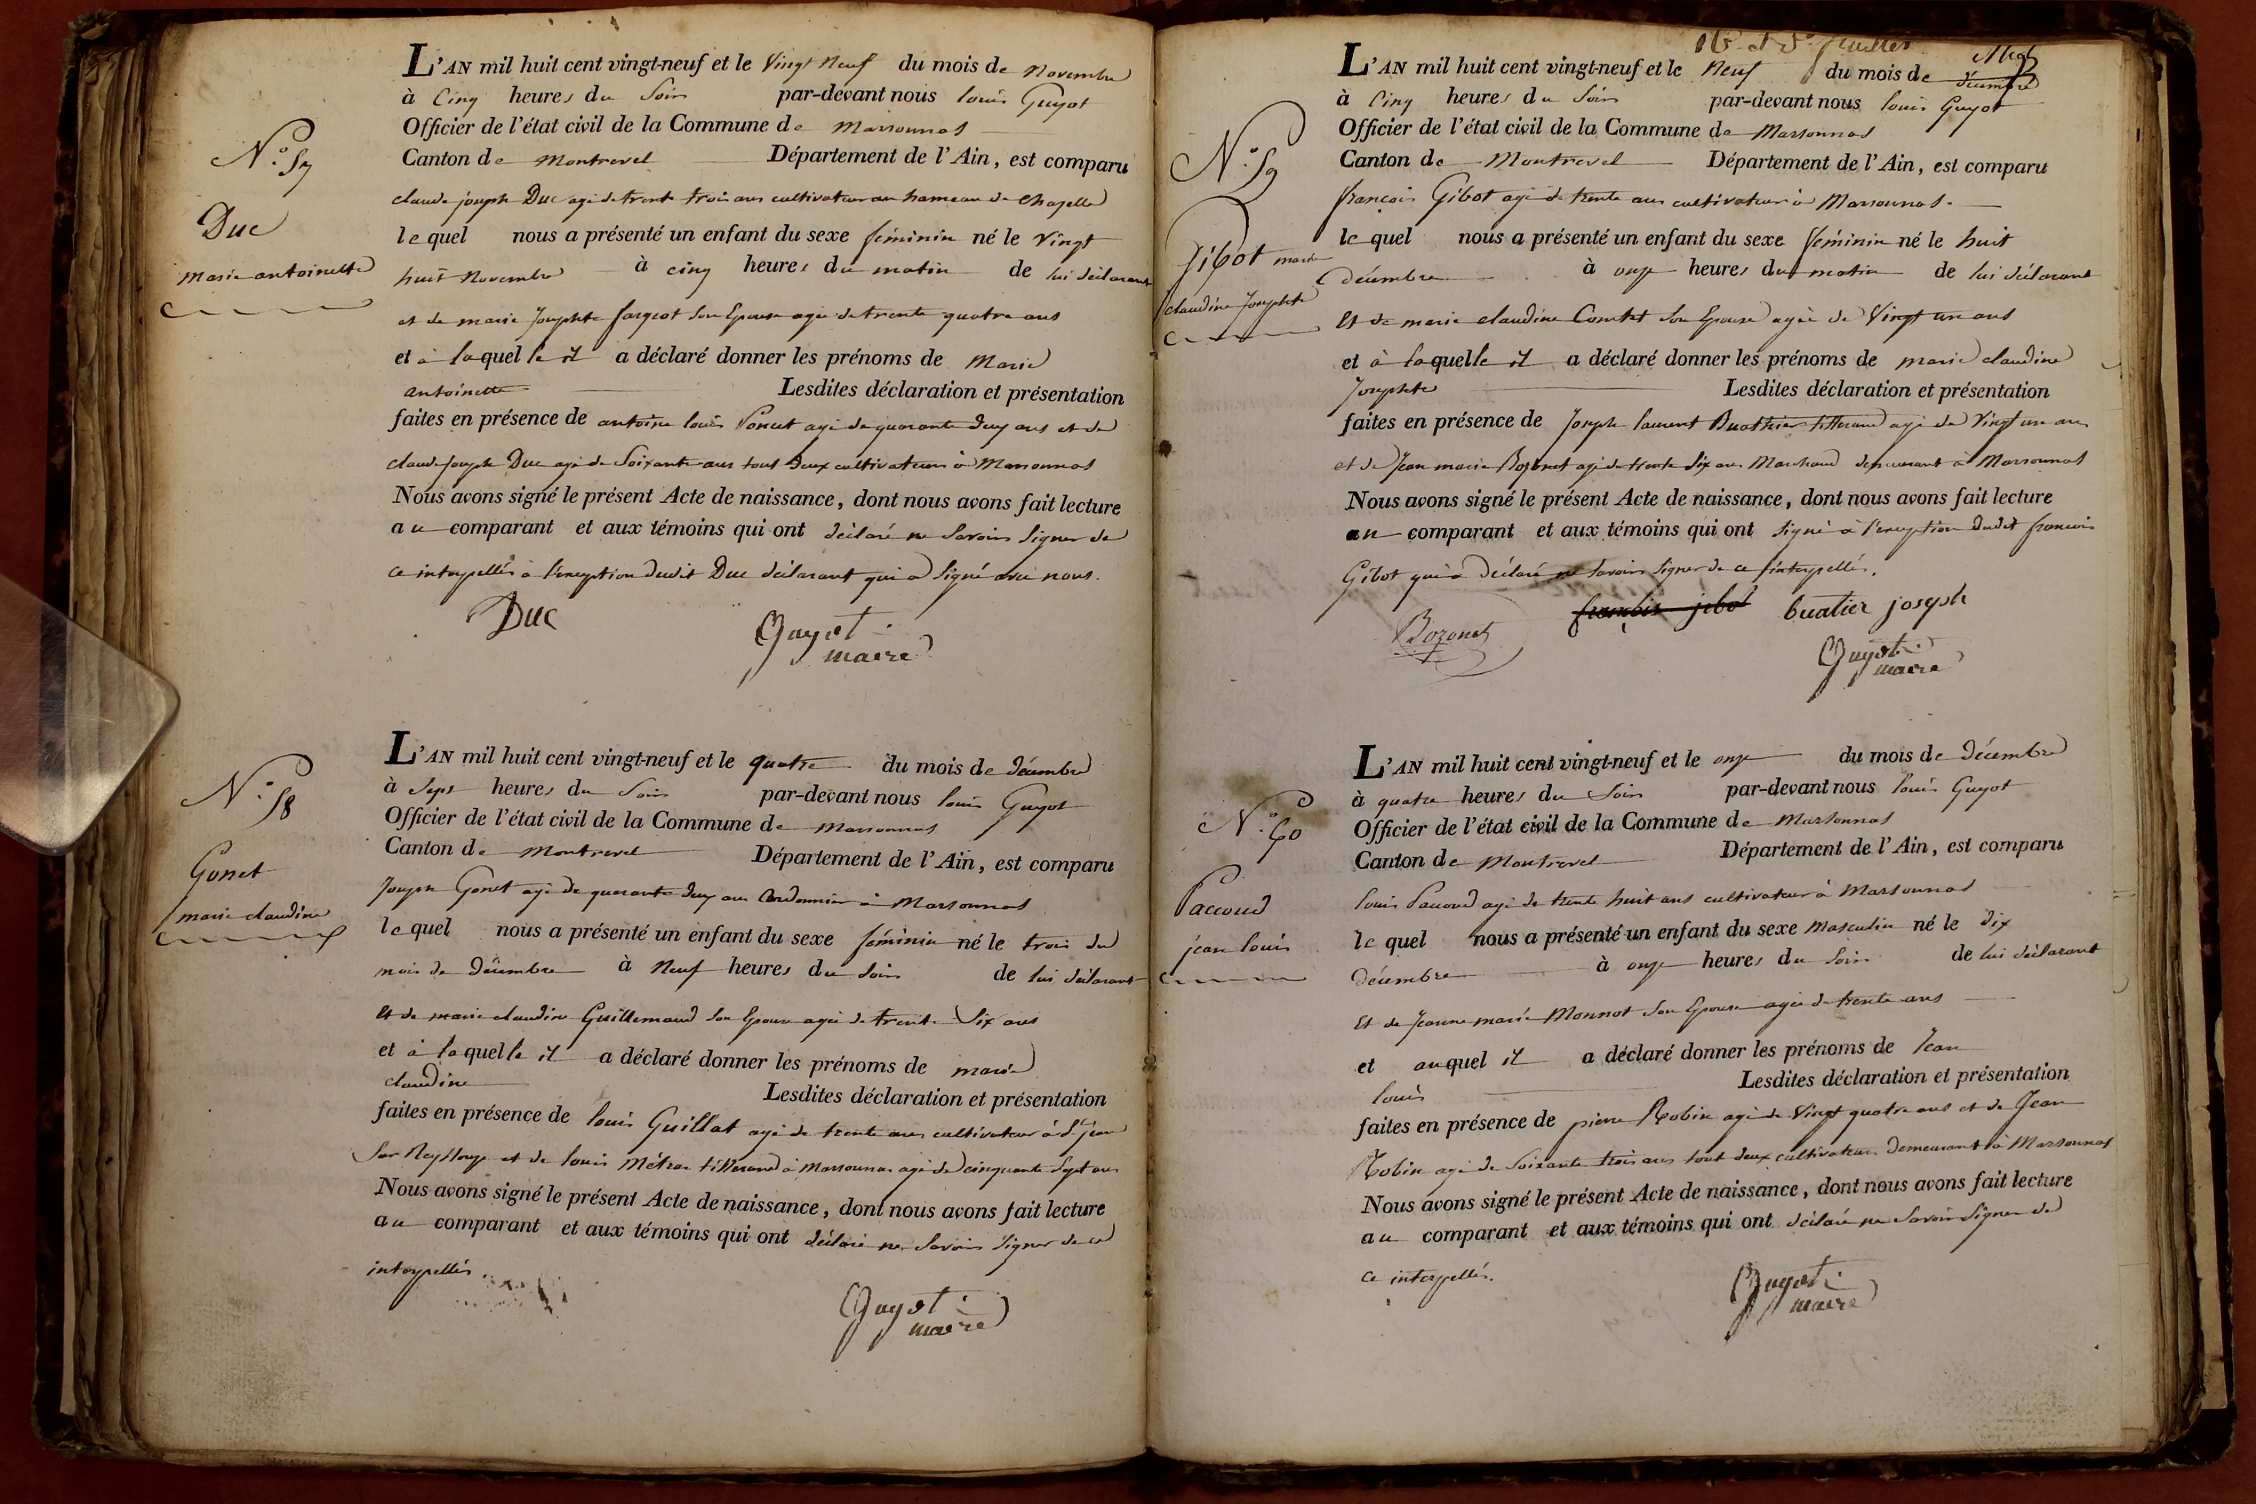 N.° 57
Duc
marie antoinette
L'AN mil huit cent vingt-neuf et le Vingt Neuf du mois de Novembre
à Cinq heures du Soir par-devant nous louis Guyot
Officier de l'état civil de la Commune de Marsonnas
Canton de Montrevel Département de l'Ain, est comparu
claude joseph Duc agé de trente trois ans cultivateur au hameau de Chazelle
lequel nous a présenté un enfant du sexe féminin né le Vingt
huit Novembre à cinq heures du matin de lui déclarant
et de marie Josephte son Epouse agée de trente quatre ans
et à laquelle il a déclaré donner les prénoms de Marie
antoinette Lesdites déclaration et présentation
faites en présence de antoine louis Poncet agé de quarante deux ans et de
claude Joseph Duc agé de Soixante ans tout deux cultivateurs à Marsonnas
Nous avons signé le présent Acte de naissance, dont nous avons fait lecture
au comparant et aux témoins qui ont déclaré ne Savoir Signer de
ce interpellés à l'exception dudit Duc déclarant qui a Signé avec nous.
Duc Guyot
maire
N.° 58
Gonet
marie claudine
L'AN mil huit cent vingt-neuf et le quatre du mois de décembre
à Sept heures du Soir par-devant nous louis Guyot
Officier de l'état civil de la Commune de Marsonnas
Canton de Montrevel Département de l'Ain, est comparu
Joseph Gonet agé de quarante deux ans Cordonnier à Marsonnas
lequel nous a présenté un enfant du sexe féminin né le trois du
mois de décembre à Neuf heures du Soir de lui déclarant
Et de marie claudine Guillemaud Son Epouse agée de trente Six ans
et à laquelle il a déclaré donner les prénoms de marie
claudine Lesdites déclaration et présentation
faites en présence de louis Guillat agé de trente ans cultivateur à St Jean
Sur Reyssouze et de louis Métras tisserand à Marsonnas agé de cinquante Sept ans
Nous avons signé le présent Acte de naissance, dont nous avons fait lecture
au comparant et aux témoins qui ont déclaré ne Savoir Signer de ce
interpellés.
Guyot
maire
16.e et d.r feuillet
N.° 59
Gibot marie
claudine Josephte
L'AN mil huit cent vingt-neuf et le Neuf du mois de décembre
à Cinq heures du Soir par-devant nous louis Guyot
Officier de l'état civil de la Commune de Marsonnas
Canton de Montrevel Département de l'Ain, est comparu
françois Gibot agé de trente ans cultivateur à Marsonnas.
lequel nous a présenté un enfant du sexe féminin né le huit
décembre à onze heures du matin de lui déclarant
Et de marie claudine Comtet Son Epouse agée de Vingt un ans
et à laquelle il a déclaré donner les prénoms de marie claudine
Josephte Lesdites déclaration et présentation
faites en présence de Joseph laurent Buathier tisserand agé de Vingt un ans
et de Jean marie Bozonet agé de trente Six ans Marchand demeurant à Marsonnas
Nous avons signé le présent Acte de naissance, dont nous avons fait lecture
au comparant et aux témoins qui ont Signé à l'exception dudit francois
Gibot qui a déclaré ne Savoir Signer de ce interpellé.
Bozonet francois jibot buatier joseph
Guyot
maire
N.° 60
Paccoud
jean louis
L'AN mil huit cent vingt-neuf et le onze du mois de décembre
à quatre heures du Soir par-devant nous louis Guyot
Officier de l'état civil de la Commune de Marsonnas
Canton de Montrevel Département de l'Ain, est comparu
louis Paccoud agé de trente huit ans cultivateur à Marsonnas
lequel nous a présenté un enfant du sexe Masculin né le dix
décembre à onze heures du Soir de lui déclarant
Et de Jeanne marie Monnot Son Epouse agée de trente ans
et auquel il a déclaré donner les prénoms de Jean
louis Lesdites déclaration et présentation
faites en présence de pierre Robin agé de Vingt quatre ans et de Jean
Robin agé de Soixante trois ans tout deux cultivateurs demeurant à Marsonnas
Nous avons signé le présent Acte de naissance, dont nous avons fait lecture
au comparant et aux témoins qui ont déclaré ne Savoir Signer de
ce interpellés.
Guyot
maire